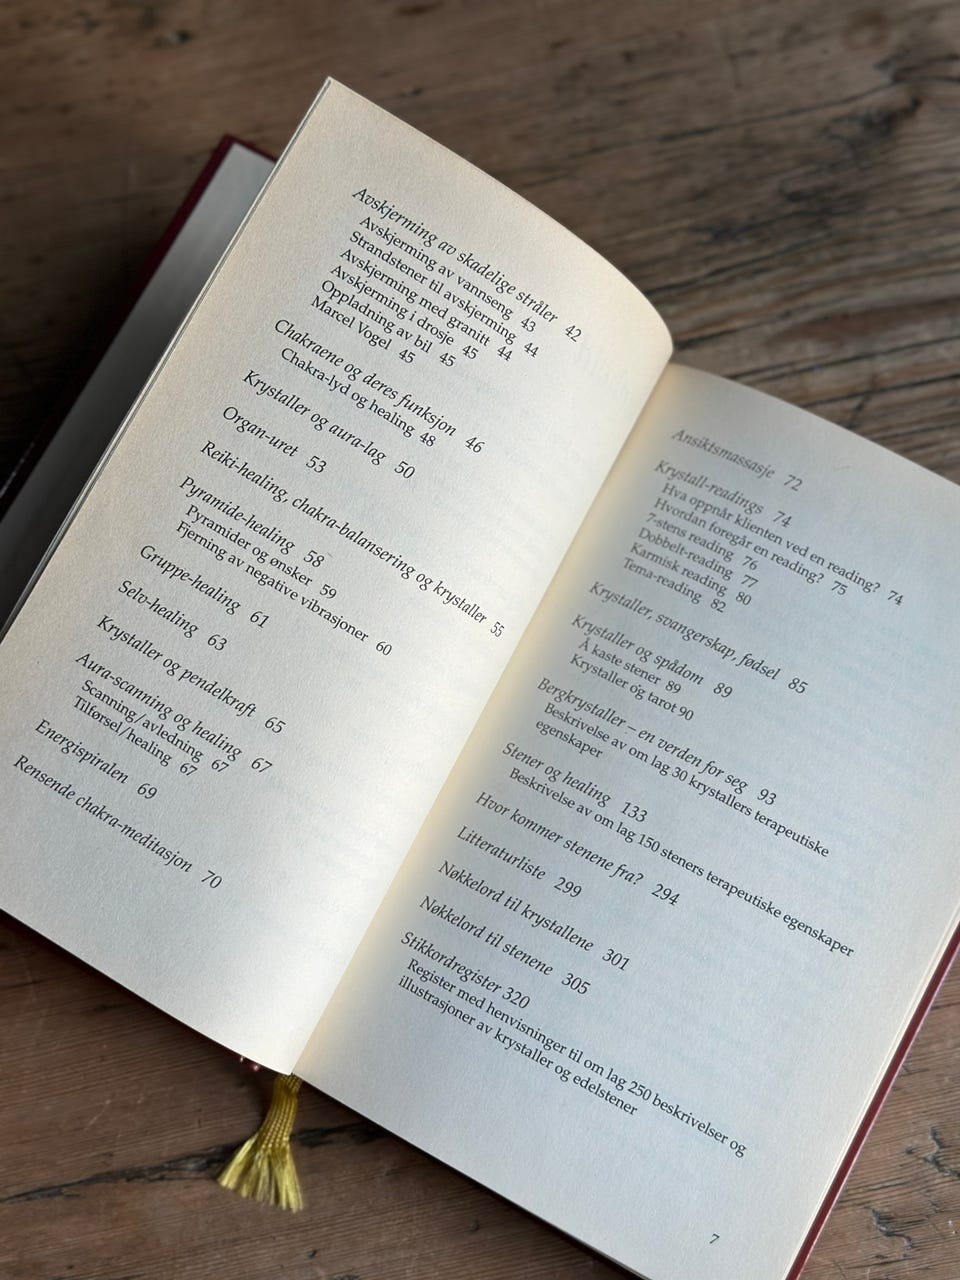 Avskjerming av skadelige stråler 42
Avskjerming av vannseng 43
Strandstener til avskjerming 44
Avskjerming med granitt 44
Avskjerming i drosje 45
Oppladning av bil 45
Marcel Vogel 45
Chakraene og deres funksjon 46
Chakra-lyd og healing 48
Krystaller og aura-lag 50
Organ-uret 53
Reiki-healing, chakra-balansering og krystaller 55
Pyramide-healing 58
Pyramider og ønsker 59
Fjerning av negative vibrasjoner 60
Gruppe-healing 61
Selv-healing 63
Krystaller og pendelkraft 65
Aura-scanning og healing 67
Scanning/avledning 67
Tilførsel/healing 67
Energispiralen 69
Rensende chakra-meditasjon 70
Ansiktsmassasje 72
Krystall-readings 74
Hva oppnår klienten ved en reading? 74
Hvordan foregår en reading? 75
7-stens reading 76
Dobbelt-reading 77
Karmisk reading 80
Tema-reading 82
Krystaller, svangerskap, fødsel 85
Krystaller og spådom 89
Å kaste stener 89
Krystaller og tarot 90
Bergkrystaller – en verden for seg 93
Beskrivelse av om lag 30 krystallers terapeutiske
egenskaper
Stener og healing 133
Beskrivelse av om lag 150 steners terapeutiske egenskaper
Hvor kommer stenene fra? 294
Litteraturliste 299
Nøkkelord til krystallene 301
Nøkkelord til stenene 305
Stikkordregister 320
Register med henvisninger til om lag 250 beskrivelser og
illustrasjoner av krystaller og edelstener
7